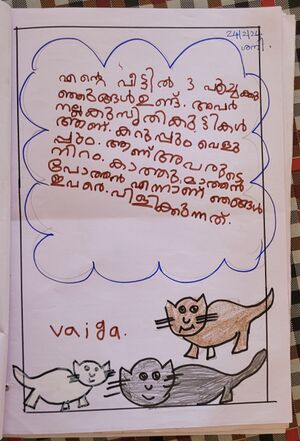 24/2/24
ശനി.
എന്റെ വീട്ടിൽ 3 പൂച്ചക്കു
ഞ്ഞുങ്ങൾ ഉണ്ട്. അവർ
നല്ല കുസൃതികുട്ടികൾ
ആണ്. കറുപ്പും വെളു
പ്പും. ആണ് അവരുടെ
നിറം. കാത്തു, മാത്തൻ
പോത്തൻ എന്നാണ് ഞങ്ങൾ
ഇവരെ. വിളിക്കുന്നത്.
vaiga.